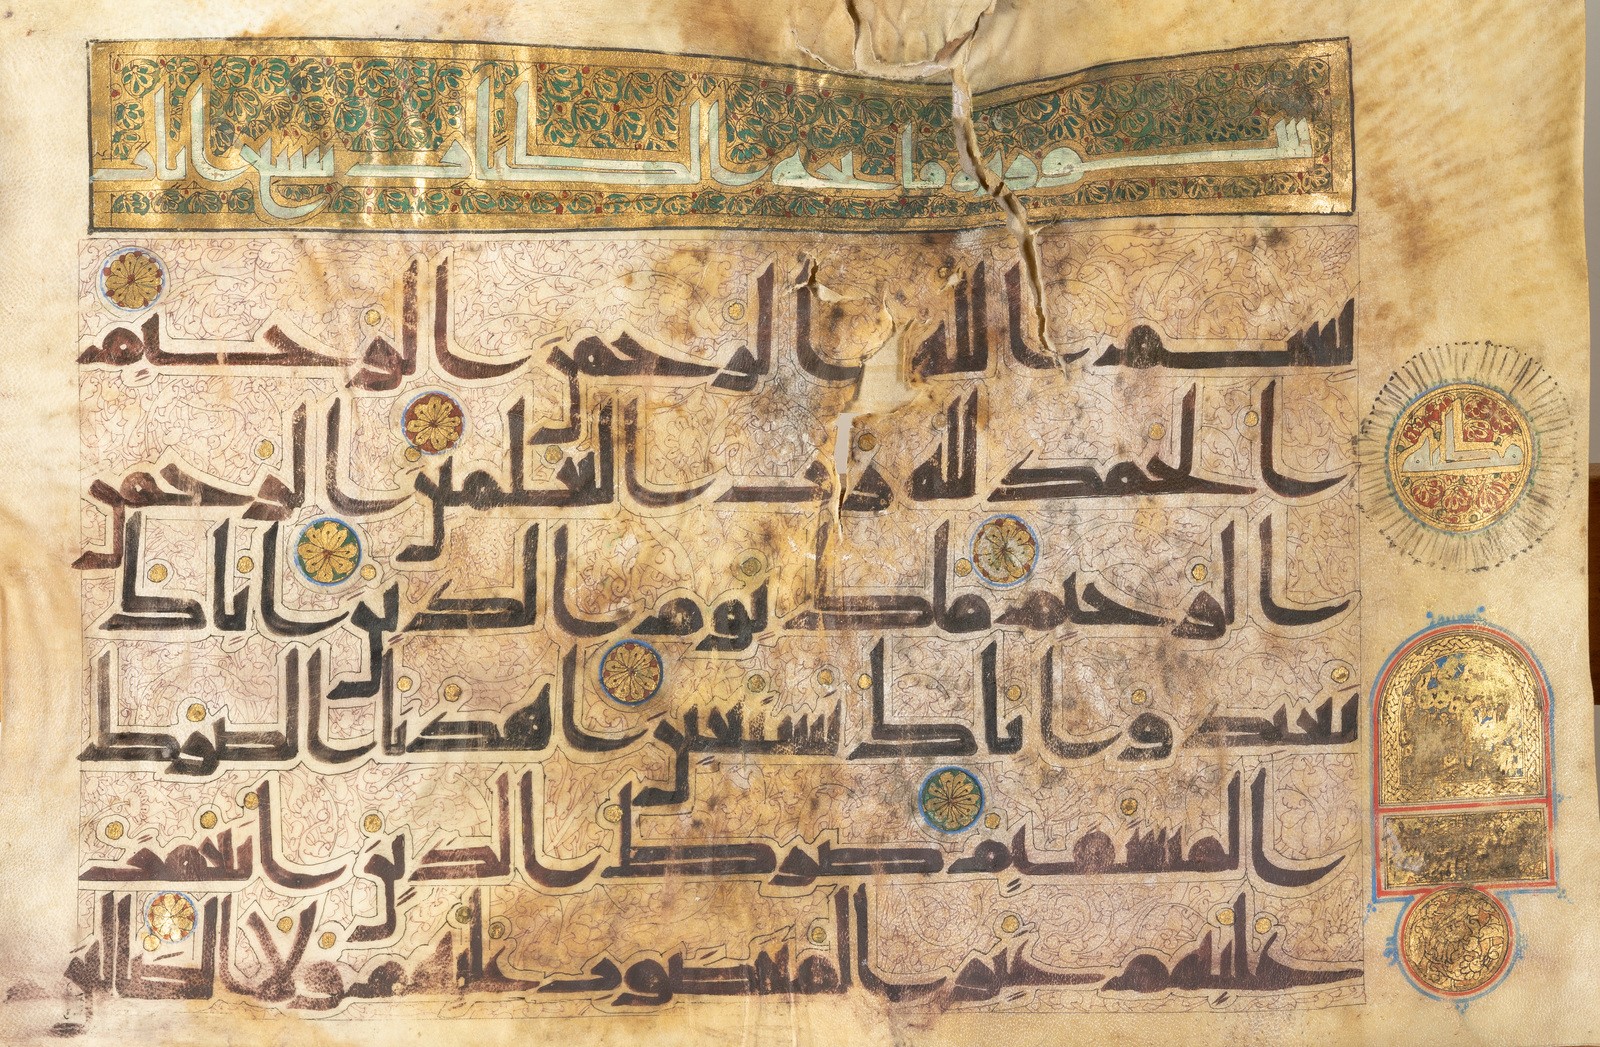 سورة فاتحة الكتاب سبع ايات
بسم الله الرحمن الرحيم
الحمد لله رب العلمين الرحمن
الرحيم ملك يوم الدين اياك
نعبد واياك نستعين اهدنا الصرط
المستقيم صرط الذين انعمت
عليهم غير المغضوب عليهم ولا الضالين
مكية